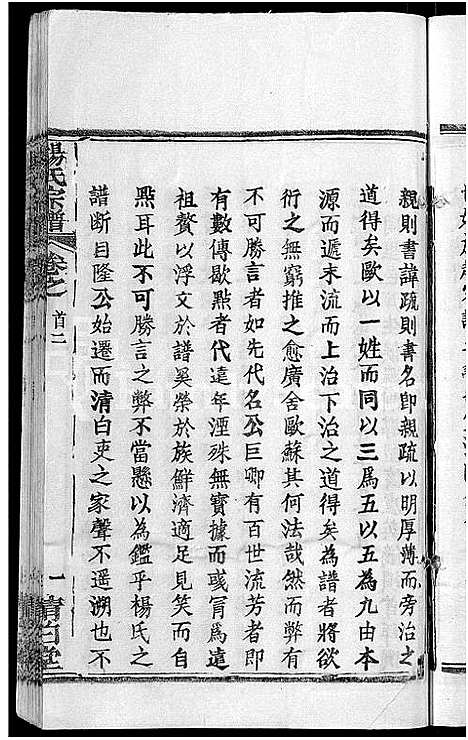 親則書諱疏則書名即親疏以明厚薄而旁治之
道得矣歐以一姓而同以三爲五以五為九由本
源而遞末流而上治下治之道得矣為譜者將欲
衍之無窮推之愈廣舍歐蘇其何法哉然而弊有
不可勝言者如先代名公巨卿有百世流芳者即
有數傳歇㸃者代遠年湮殊無實據而或冐爲遠
祖贅以浮文於譜奚榮於族鮮濟適足見笑而自
㸃耳此不可勝言之弊不當懸以為鑑乎楊氏之
譜断自隆公始遷而清白吏之家聲不遥溯也不
楊氏宗譜
卷之首二
一
清白堂